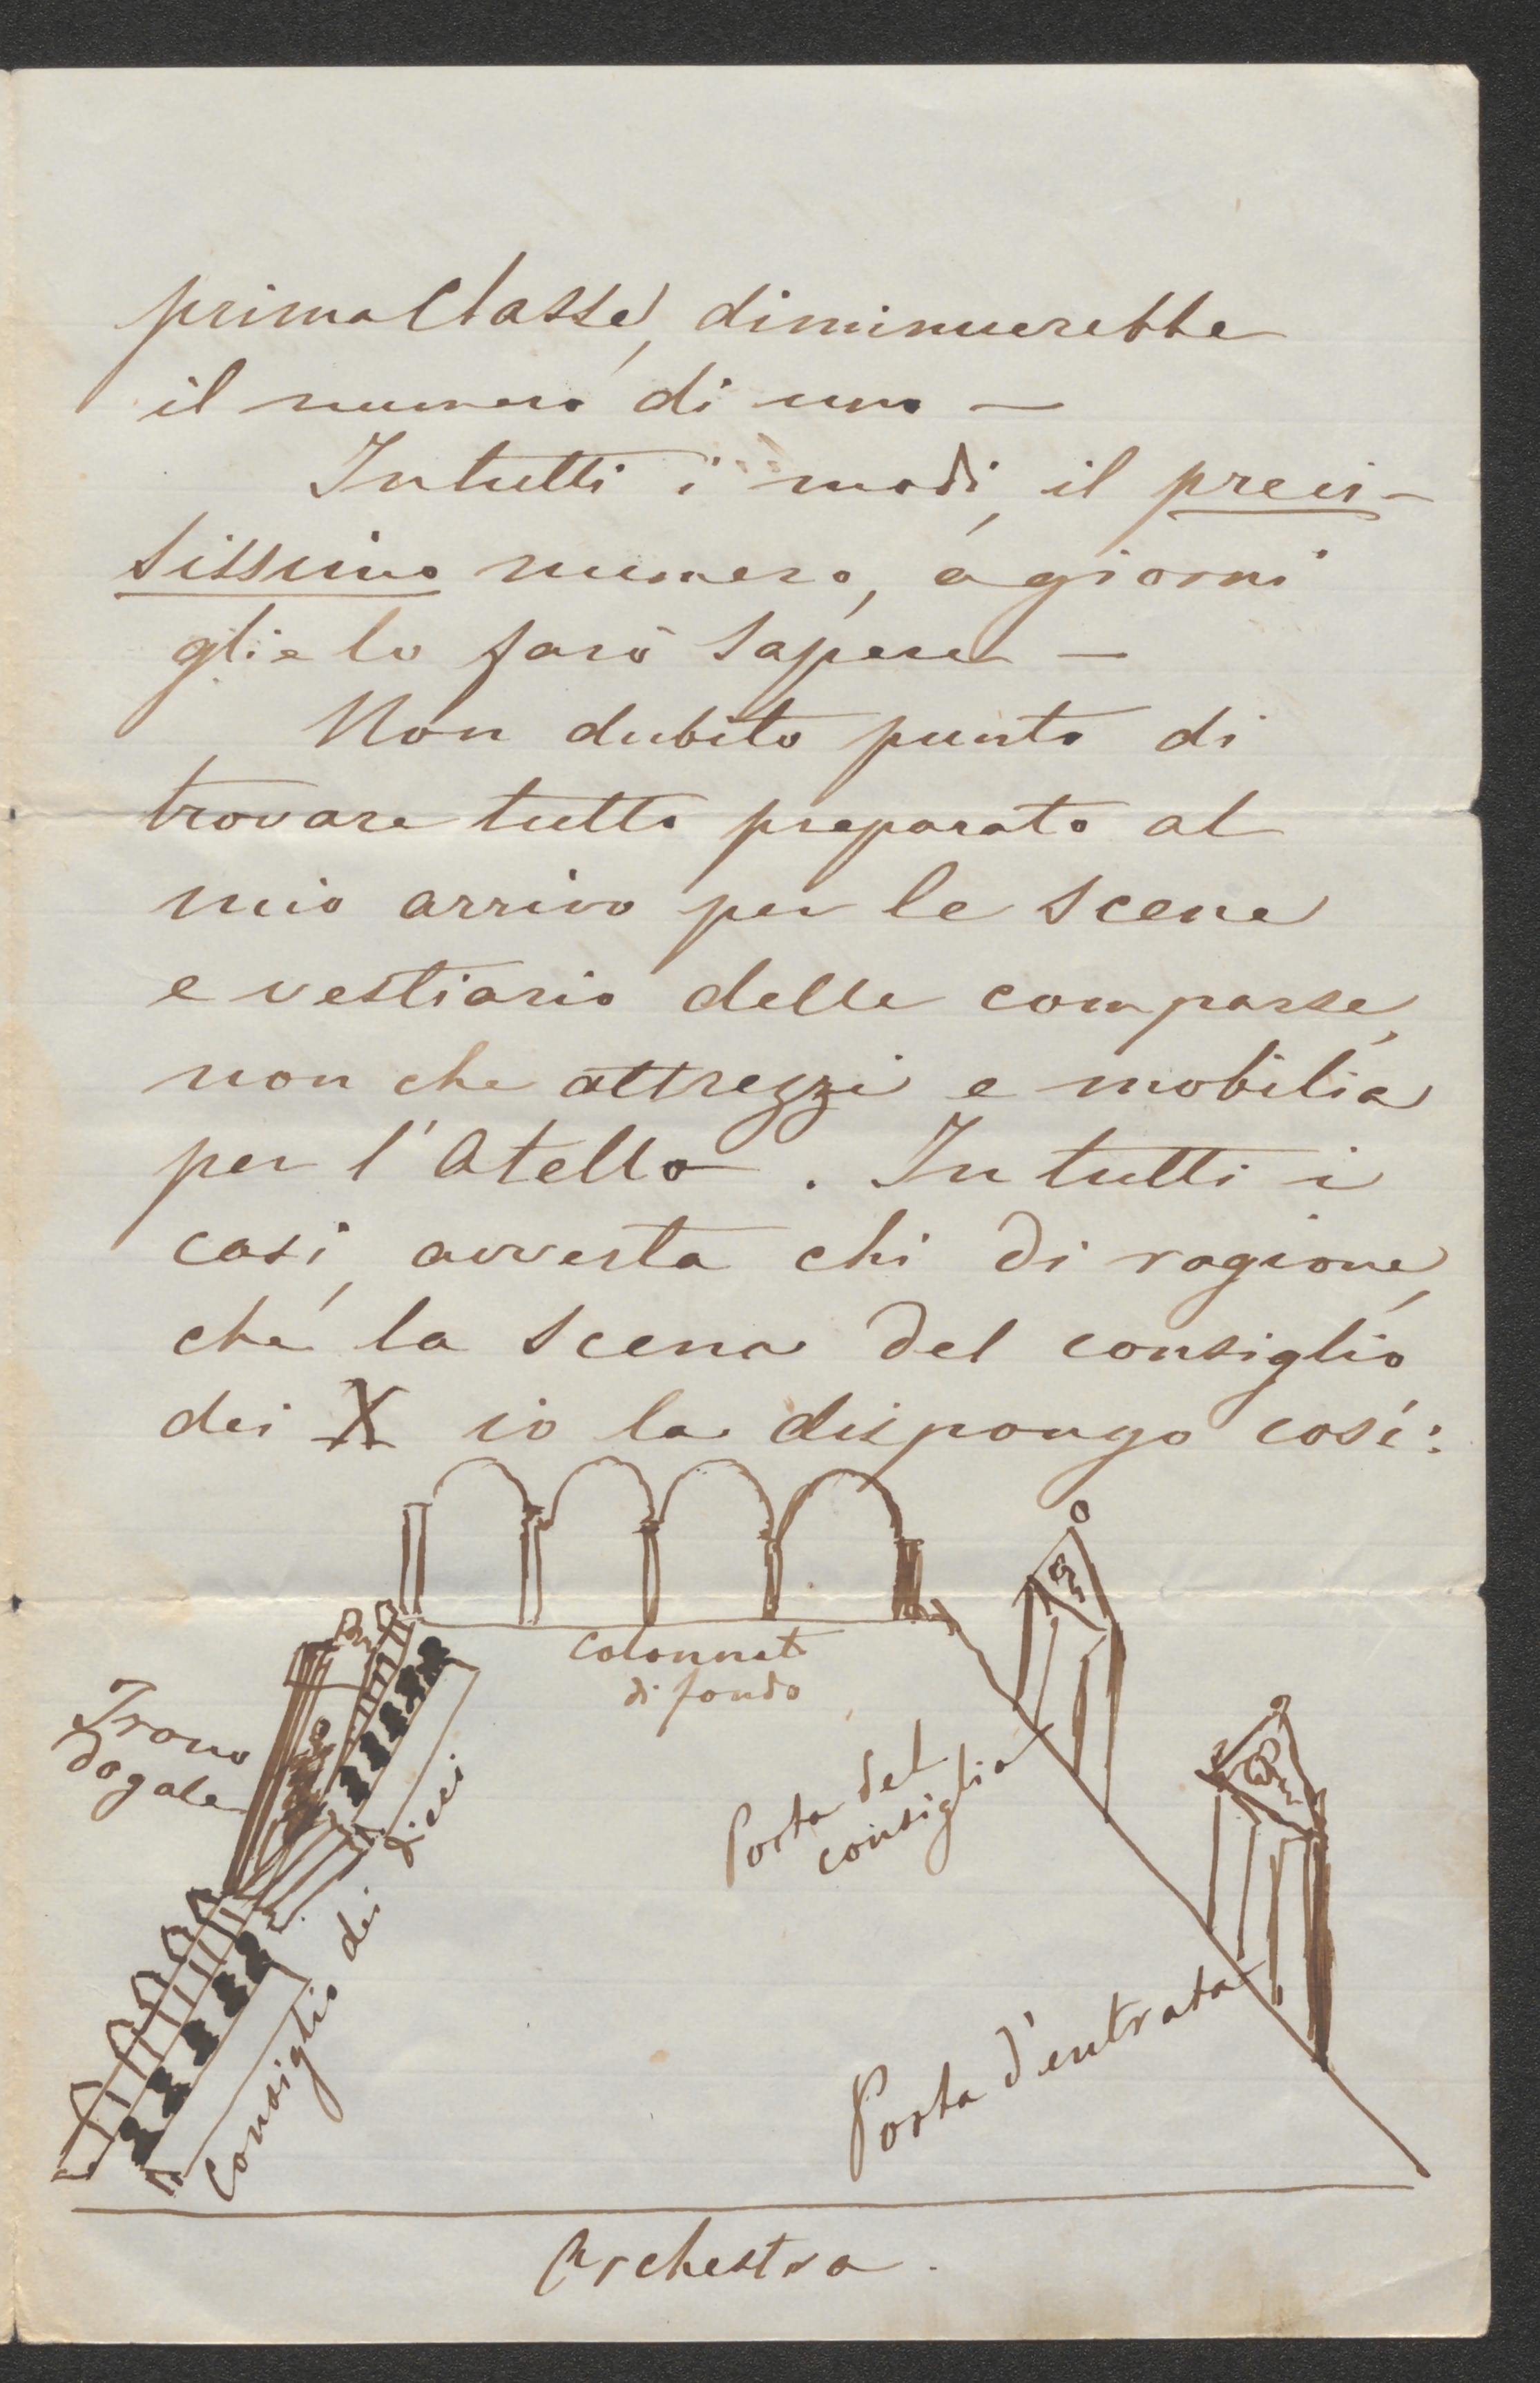 prima Classe, diminuerebbe
il numero di uno —
In tutti i modi, il precis-
sissimo numero, a giorni
glie lo farò sapere —
Non dubito punto di
trovare tutto preparato al
mio arrivo per le scene
e vestiario delle comparse,
non che attrezzi e mobilia
per l'Otello. In tutti i
casi, avverta chi di ragione,
che la scena del consiglio
dei X io la dispongo così:
Colonnato
di fondo
Trono
dogale
Consiglio dei dieci
Porta del
consiglio
Porta d'entrata
Orchestra.